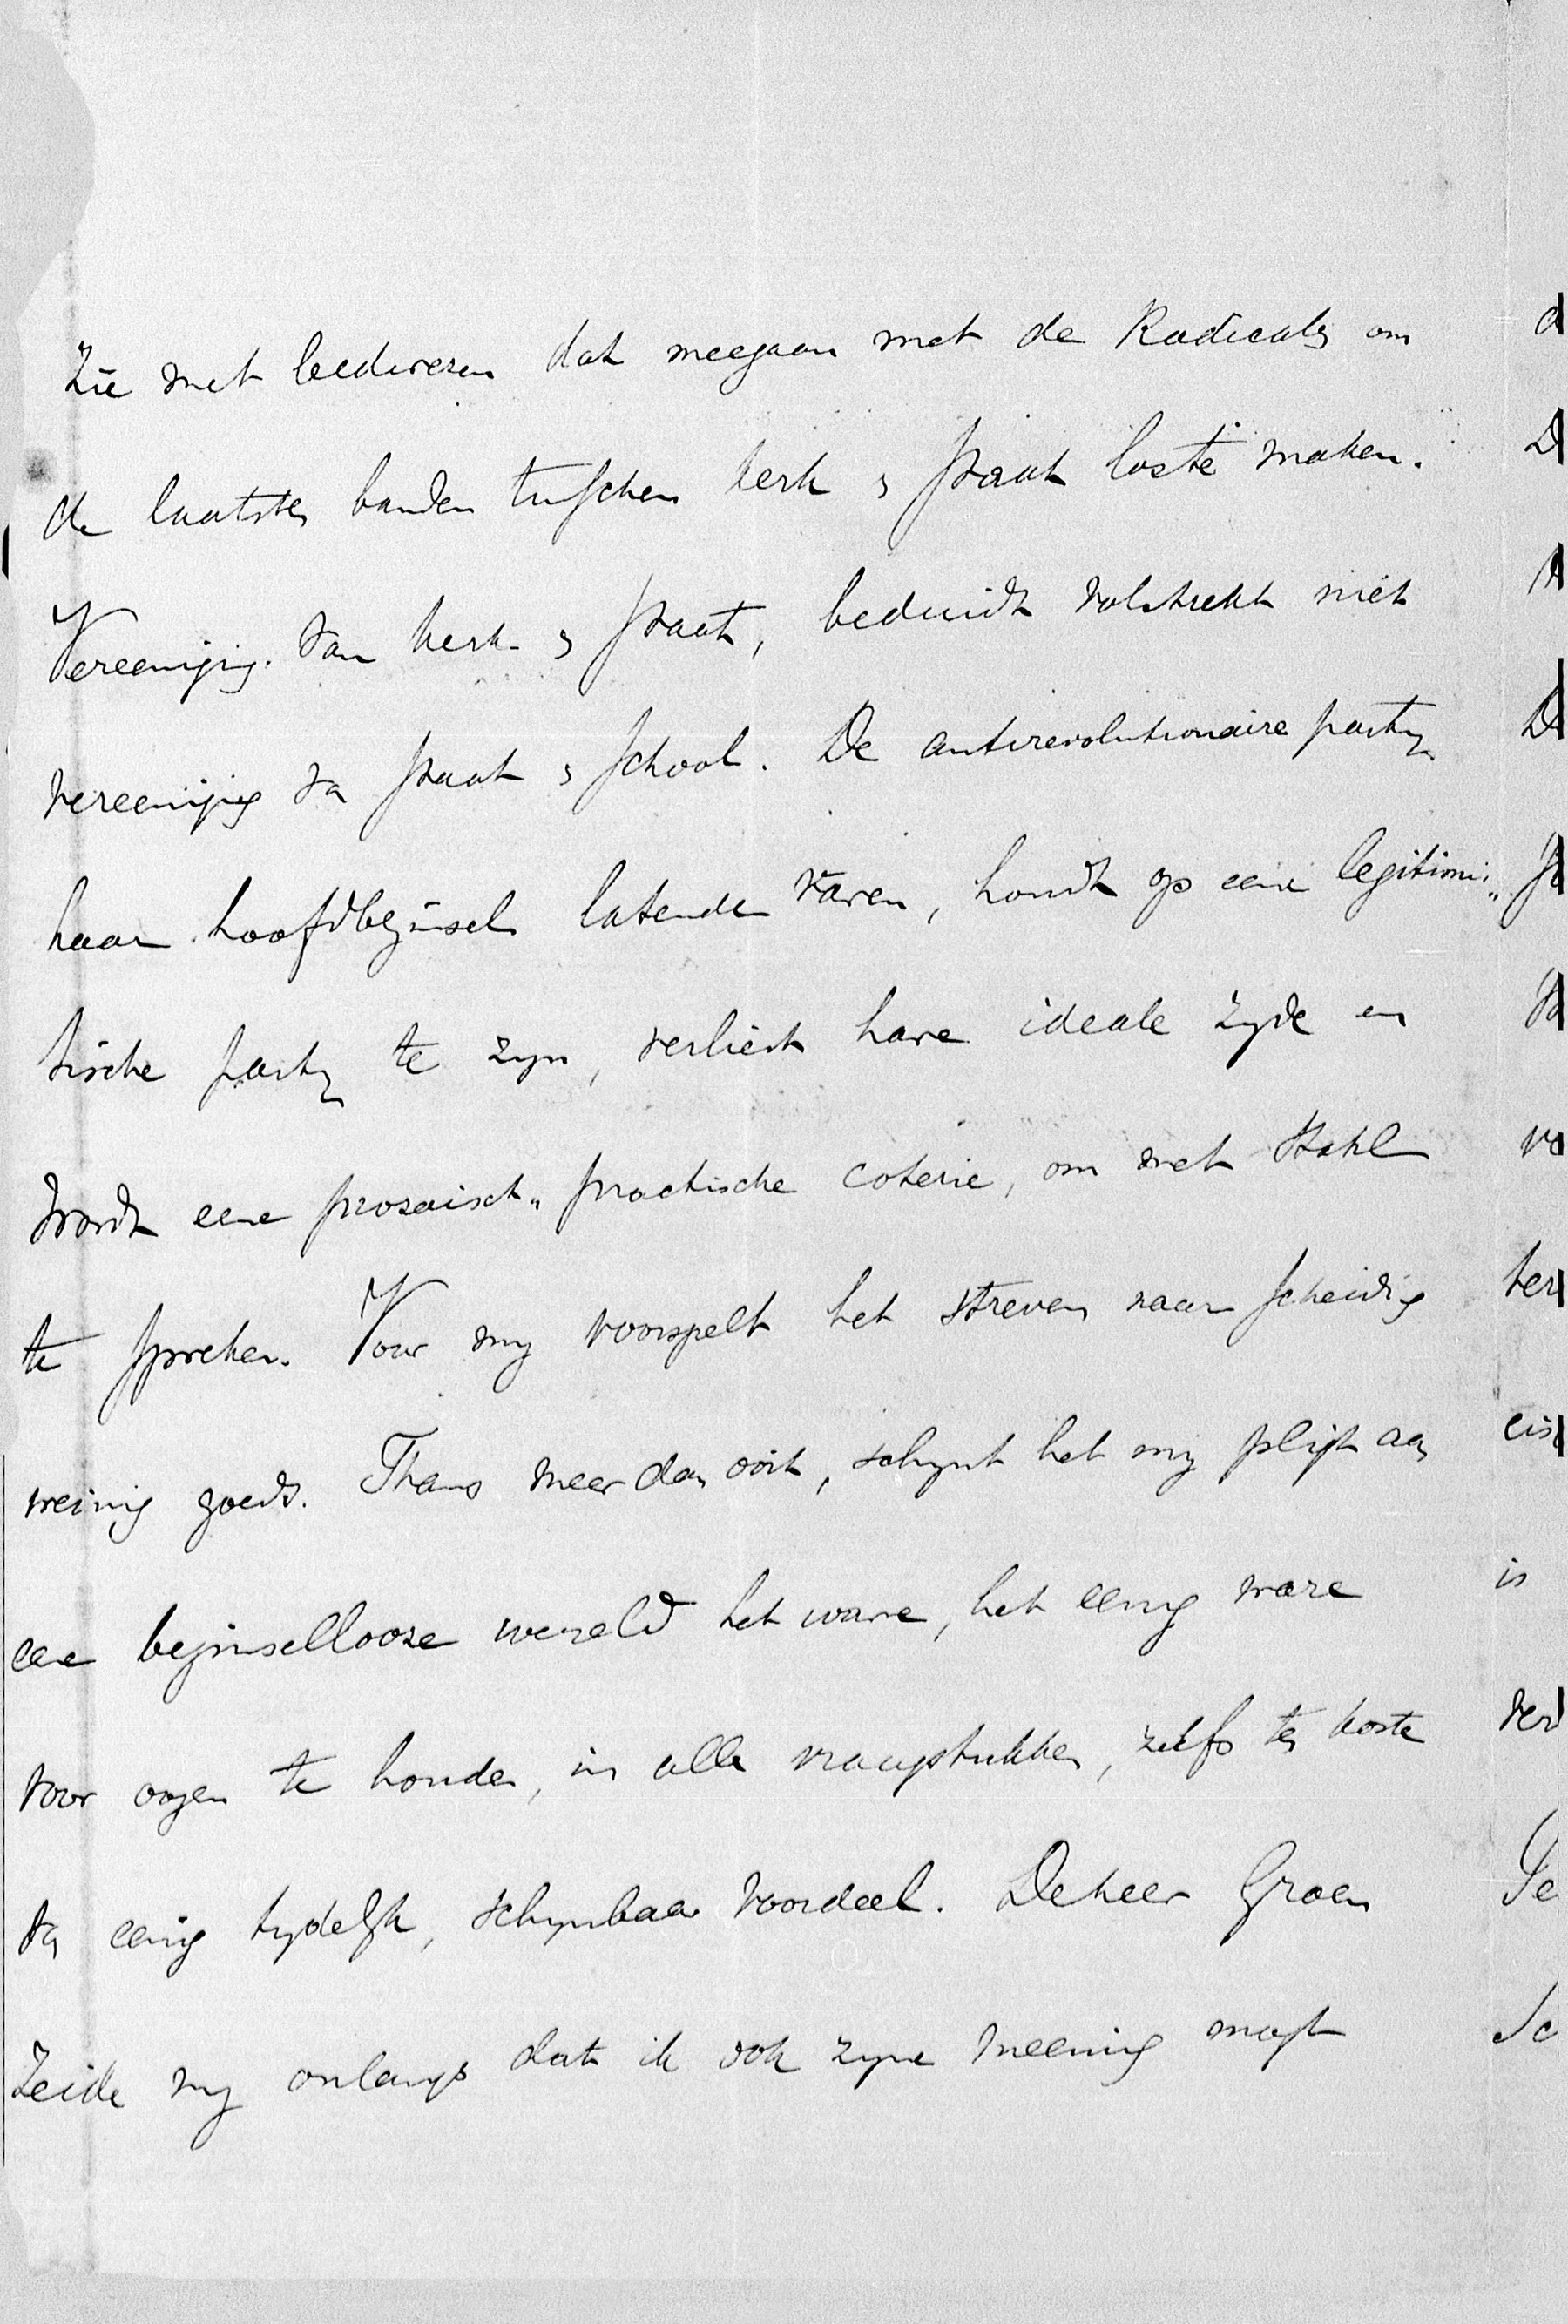 zie met leedwezen dat meegaan met de Radicalen om
de laatste banden tusschen kerk & staat los te maken.
Vereeniging van kerk & staat, beduidt volstrekt niet
vereeniging van staat & school. De antirevolutionaire party
haar hoofdbeginsel latende varen, houdt op eene legitimi„
tische party te zyn, verliest hare ideale zyde en
wordt eene prozaisch„ practische coterie, om met Stahl
te spreken. Voor my voorspelt het streven naar scheiding
weinig goeds. Thans meer dan ooit, schynt het my pligt aan
eene beginsellooze wereld het ware, het eenig ware
voor oogen te houden, in alle vraagstukken, zelfs ten koste
van eenig tydelyk, schynbaar voordeel. De heer Groen
zeide my onlangs dat ik ook zyne meening mogt